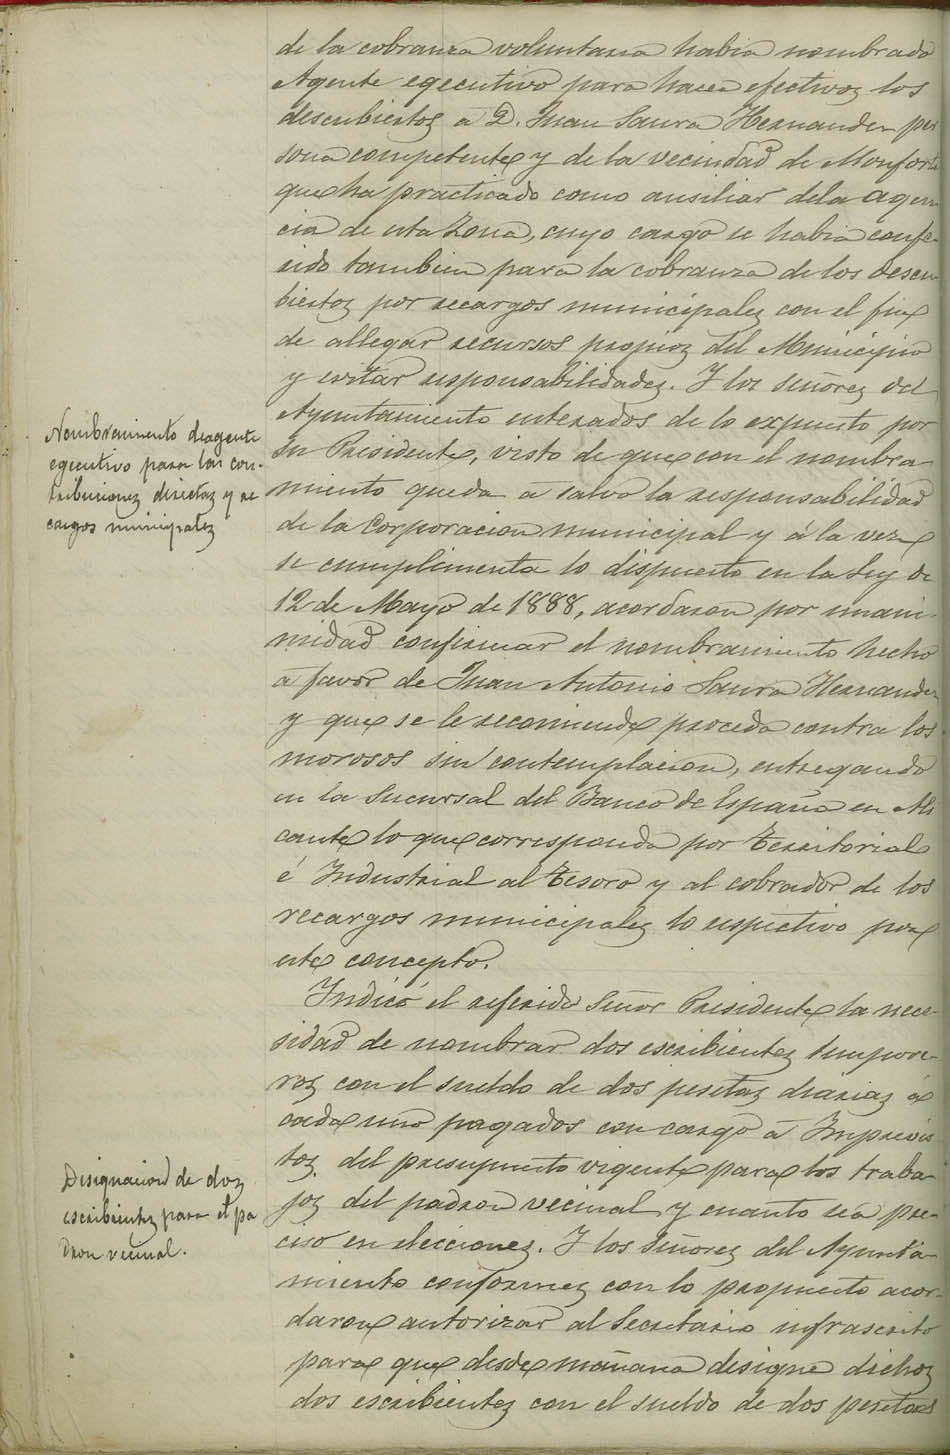 de la cobranza voluntaria habia nombrado
Agente egecutivo para hacer efectivos los
descubiertos a D. Juan Saura Hernandez per
sona competente y de la vecindad de Monforte
que ha practicado como ausiliar dela agen
cia de esta Zona, cuyo cargo se habia confe-
rido tambien para la cobranza de los descu
biertos por recargos municipales con el fin
de allegar recursos propios del Municipio
y evitar responsabilidades. Y los Señores del
Ayuntamiento enterados de lo expuesto por
su Presidente, visto de que con el nombra-
miento queda a salvo la responsabilidad
de la Corporacion municipal y á la vez
se cumplimenta lo dispuesto en la Ley de
12 de Mayo de 1888, acordaron por unani-
midad confirmar el nombramiento hecho
a favor de Juan Antonio Saura Hernandez
y que se le recomiende proceda contra los
morosos sin contemplacion, entregando
en la Sucursal del Banco de España en Ali
cante lo que corresponda por Territorial
é Industrial al Tesoro y al cobrador de los
recargos municipales lo respectivo por
este concepto.
Nombramiento de agente
egecutivo para las con-
tribuciones directas y re
cargos municipales
Indicó el referido Señor Presidente la nece-
sidad de nombrar dos escribientes tempore-
ros con el sueldo de dos pesetas diarias á
cada uno pagados con cargo a Imprevis
tos del presupuesto vigente para los traba-
jos del padron vecinal y cuanto sea pre-
ciso en elecciones. Y los Señores del Ayunta-
miento conformes con lo propuesto acor-
daron autorizar al Secretario infrascrito
para que desde mañana designe dichos
dos escribientes con el sueldo de dos pesetas
Designacion de dos
escribientes para el pa
dron vecinal.